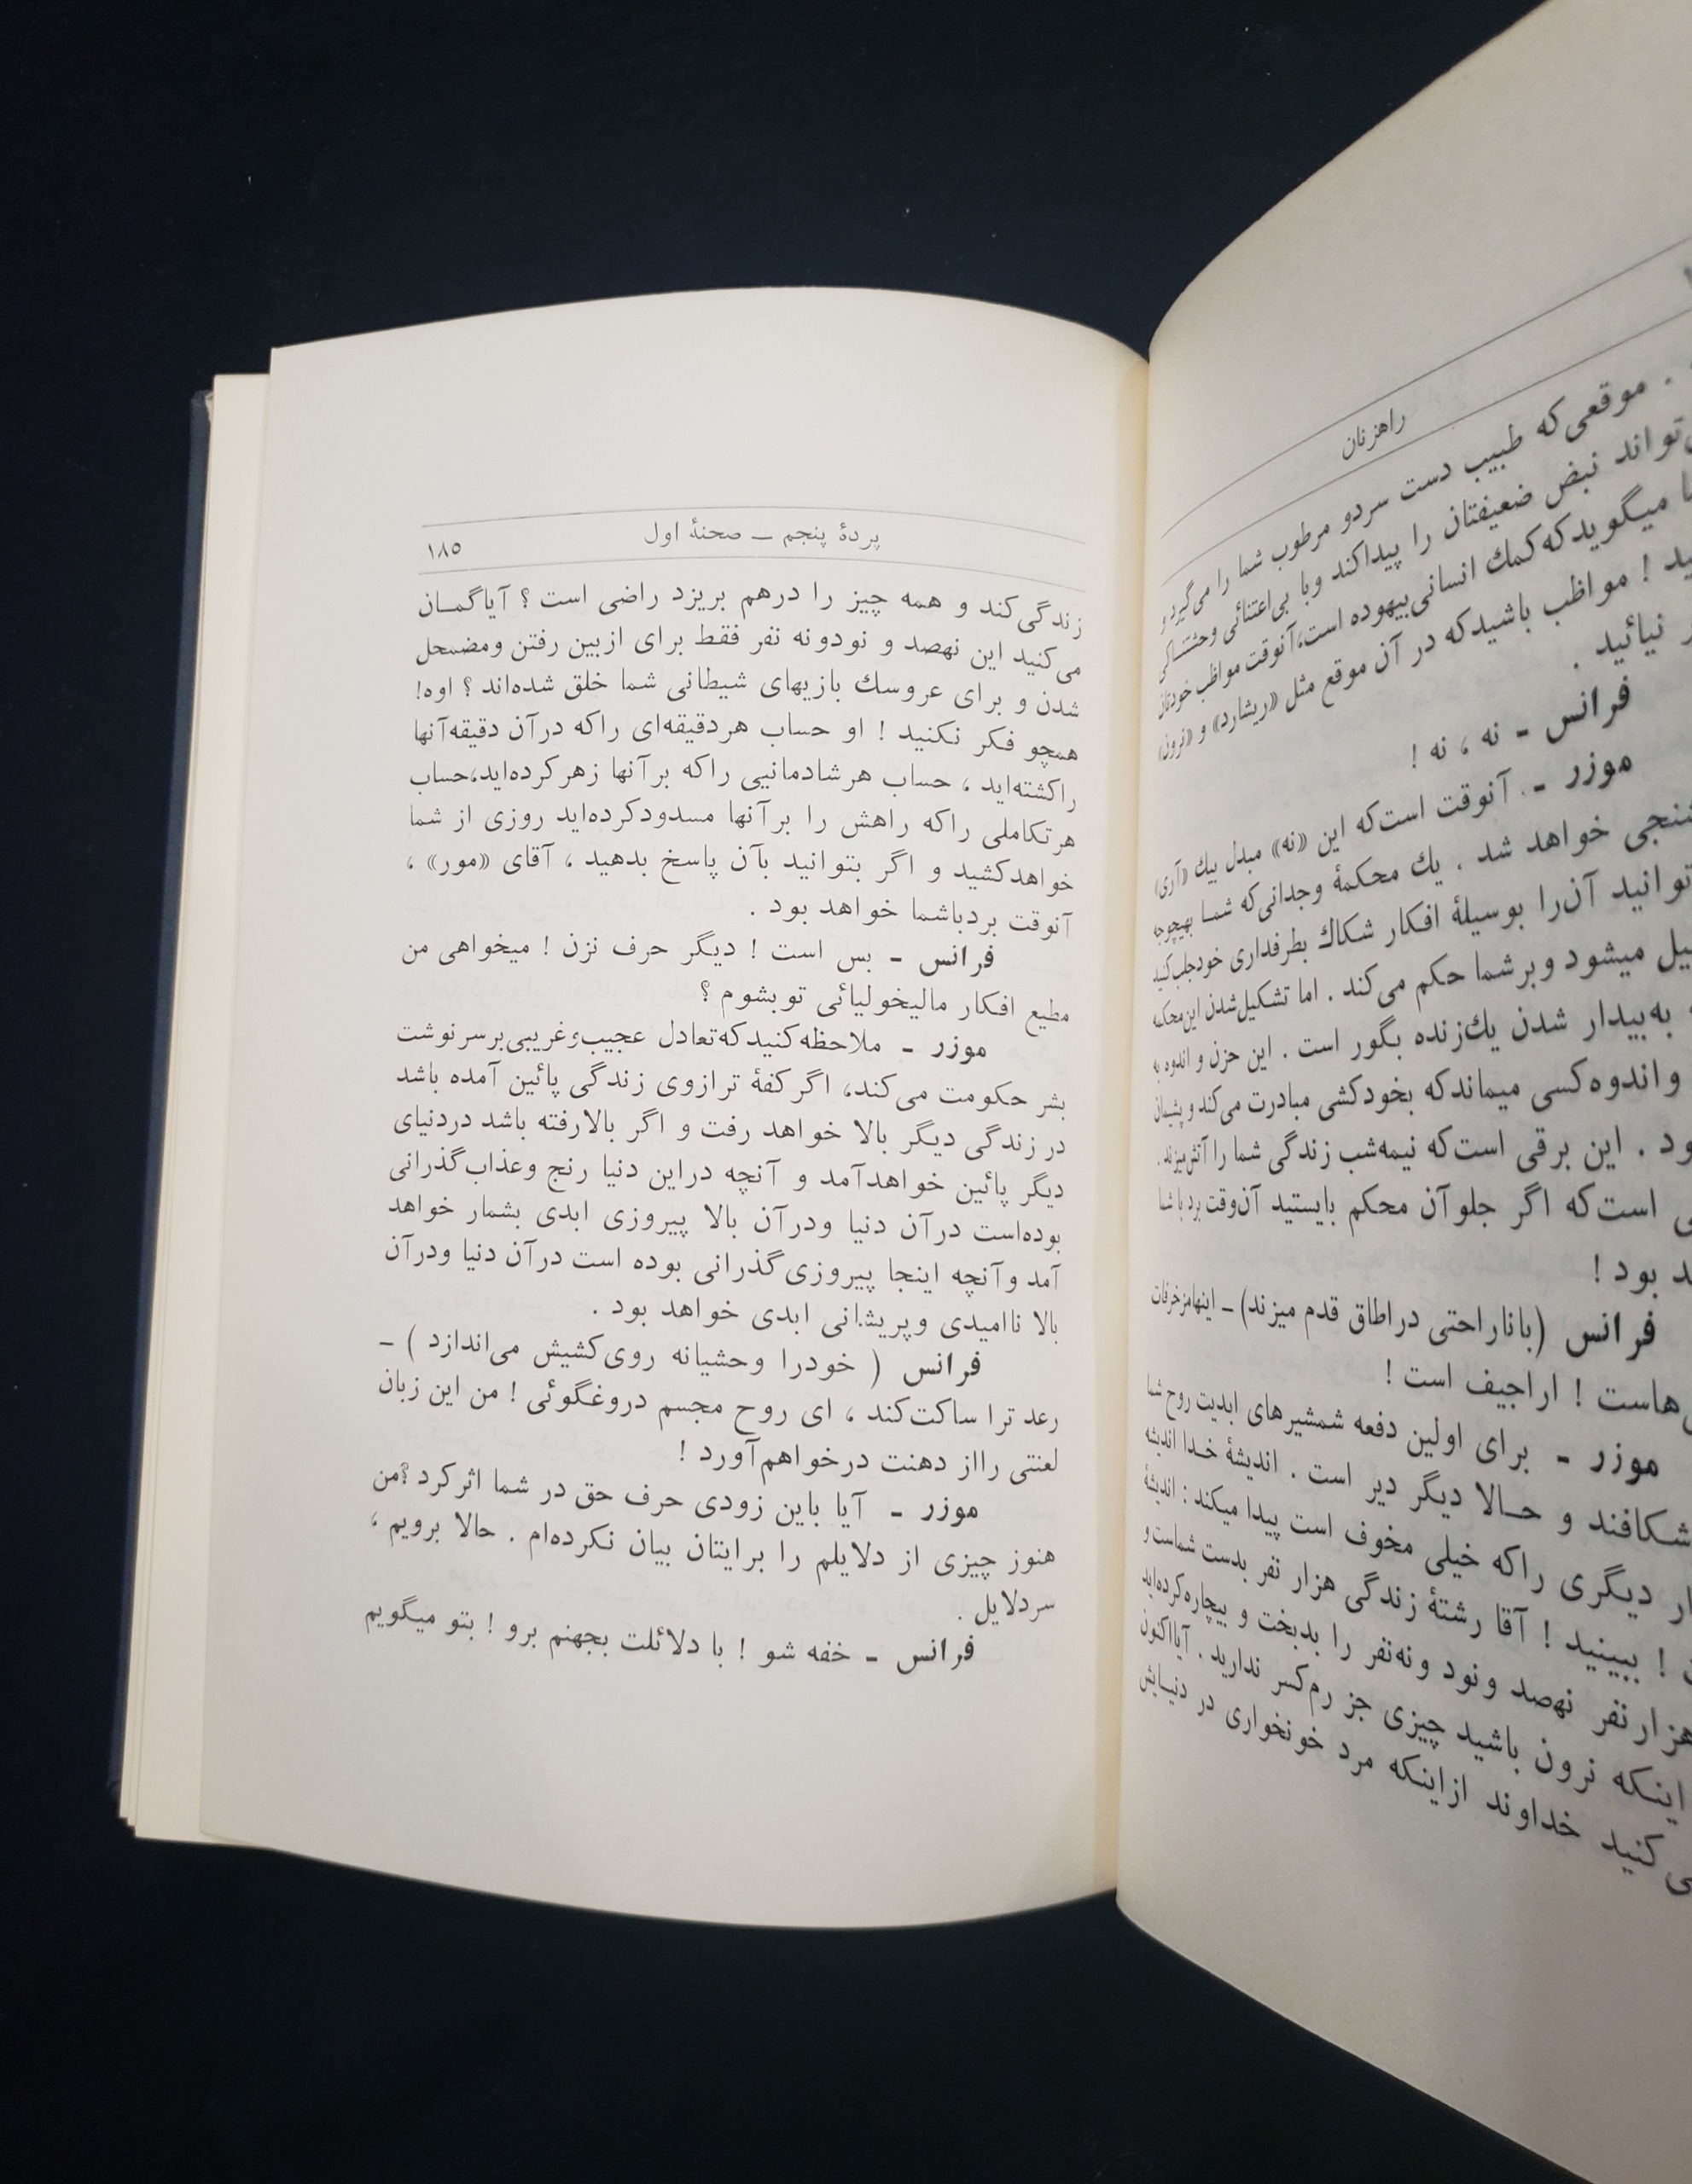 راهزنان
. موقعی‌که طبیب دست سردو مرطوب شما را می‌گیرد و
تواند نبض ضعیفتان را پیداکند وبا بی‌اعتنائی وحشتناکی
میگویدکه‌کمك انسانی‌بیهوده است،آنوقت مواظب خودتان
! مواظب باشیدکه در آن موقع مثل «ریشارد» و «نرون»
نیائید .
فرانس - نه ، نه !
موزر - آنوقت است‌که این «نه» مبدل بیك «آری»
خواهد شد . یك محکمهٔ وجدانی‌که شما بهیچوجه
توانید آن‌را بوسیلهٔ افکار شکاك بطرفداری خودجلب‌کنید
میشود وبرشما حکم می‌کند . اما تشکیل‌شدن این‌محکمه
به‌بیدار شدن یك‌زنده بگور است . این حزن و اندوه به
واندوه‌کسی میماندکه بخودکشی مبادرت می‌کند و پشیمان
. این برقی است‌که نیمه‌شب زندگی شما را آتش‌میزند .
است‌که اگر جلوآن محکم بایستید آن‌وقت برد با شما
بود !
فرانس (باناراحتی دراطاق قدم میزند) - اینهامزخرفات
هاست ! اراجیف است !
موزر - برای اولین دفعه شمشیرهای ابدیت روح شما
شکافند و حـالا دیگر دیر است . اندیشهٔ خـدا اندیشه
دیگری راکه خیلی مخوف است پیدا میکند : اندیشهٔ
! ببینید ! آقا رشتهٔ زندگی هزار نفر بدست شماست و
هزارنفر نهصد ونود ونه‌نفر را بدبخت و بیچاره‌کرده‌اید
اینکه نرون باشید چیزی جز رم‌کسر ندارید . آیااکنون
کنید خداوند ازاینکه مرد خونخواری در دنیـایش
پردهٔ پنجم — صحنهٔ اول
۱۸۵
زندگی‌کند و همه چیز را درهم بریزد راضی است ؟ آیاگمـان
می‌کنید این نهصد و نودونه نفر فقط برای ازبین رفتن ومضمحل
شدن و برای عروسك بازیهای شیطانی شما خلق شده‌اند ؟ اوه!
همچو فکر نکنید ! او حساب هردقیقه‌ای راکه درآن دقیقه‌آنها
راکشته‌اید ، حساب هرشادمانیی راکه برآنها زهرکرده‌اید،حساب
هرتکاملی راکه راهش را برآنها مسدودکرده‌اید روزی از شما
خواهدکشید و اگر بتوانید بآن پاسخ بدهید ، آقای «مور» ،
آنوقت بردباشما خواهد بود .
فرانس - بس است ! دیگر حرف نزن ! میخواهی من
مطیع افکار مالیخولیائی توبشوم ؟
موزر - ملاحظه‌کنیدکه‌تعادل عجیب‌وغریبی‌برسرنوشت
بشر حکومت می‌کند، اگرکفهٔ ترازوی زندگی پائین آمده باشد
در زندگی دیگر بالا خواهد رفت و اگر بالارفته باشد دردنیای
دیگر پائین خواهدآمد و آنچه دراین دنیا رنج وعذاب‌گذرانی
بوده‌است درآن دنیا ودرآن بالا پیروزی ابدی بشمار خواهد
آمد وآنچه اینجا پیروزی‌گذرانی بوده است درآن دنیا ودرآن
بالا ناامیدی وپریشانی ابدی خواهد بود .
فرانس ( خودرا وحشیانه روی‌کشیش می‌اندازد ) -
رعد ترا ساکت‌کند ، ای روح مجسم دروغگوئی ! من این زبان
لعنتی رااز دهنت درخواهم‌آورد !
موزر - آیا باین زودی حرف حق در شما اثرکرد ؟من
هنوز چیزی از دلایلم را برایتان بیان نکرده‌ام . حالا برویم ،
سردلایل .
فرانس - خفه شو ! با دلائلت بجهنم برو ! بتو میگویم